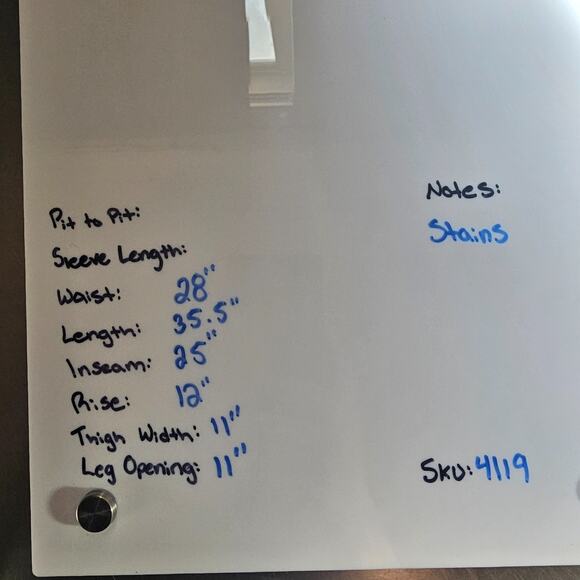 Pit to Pit:
Sleeve Length:
Waist: 28"
Length: 35.5"
Inseam: 25"
Rise: 12"
Thigh Width: 11"
Leg Opening: 11"
Notes:
Stains
SKU: 4119